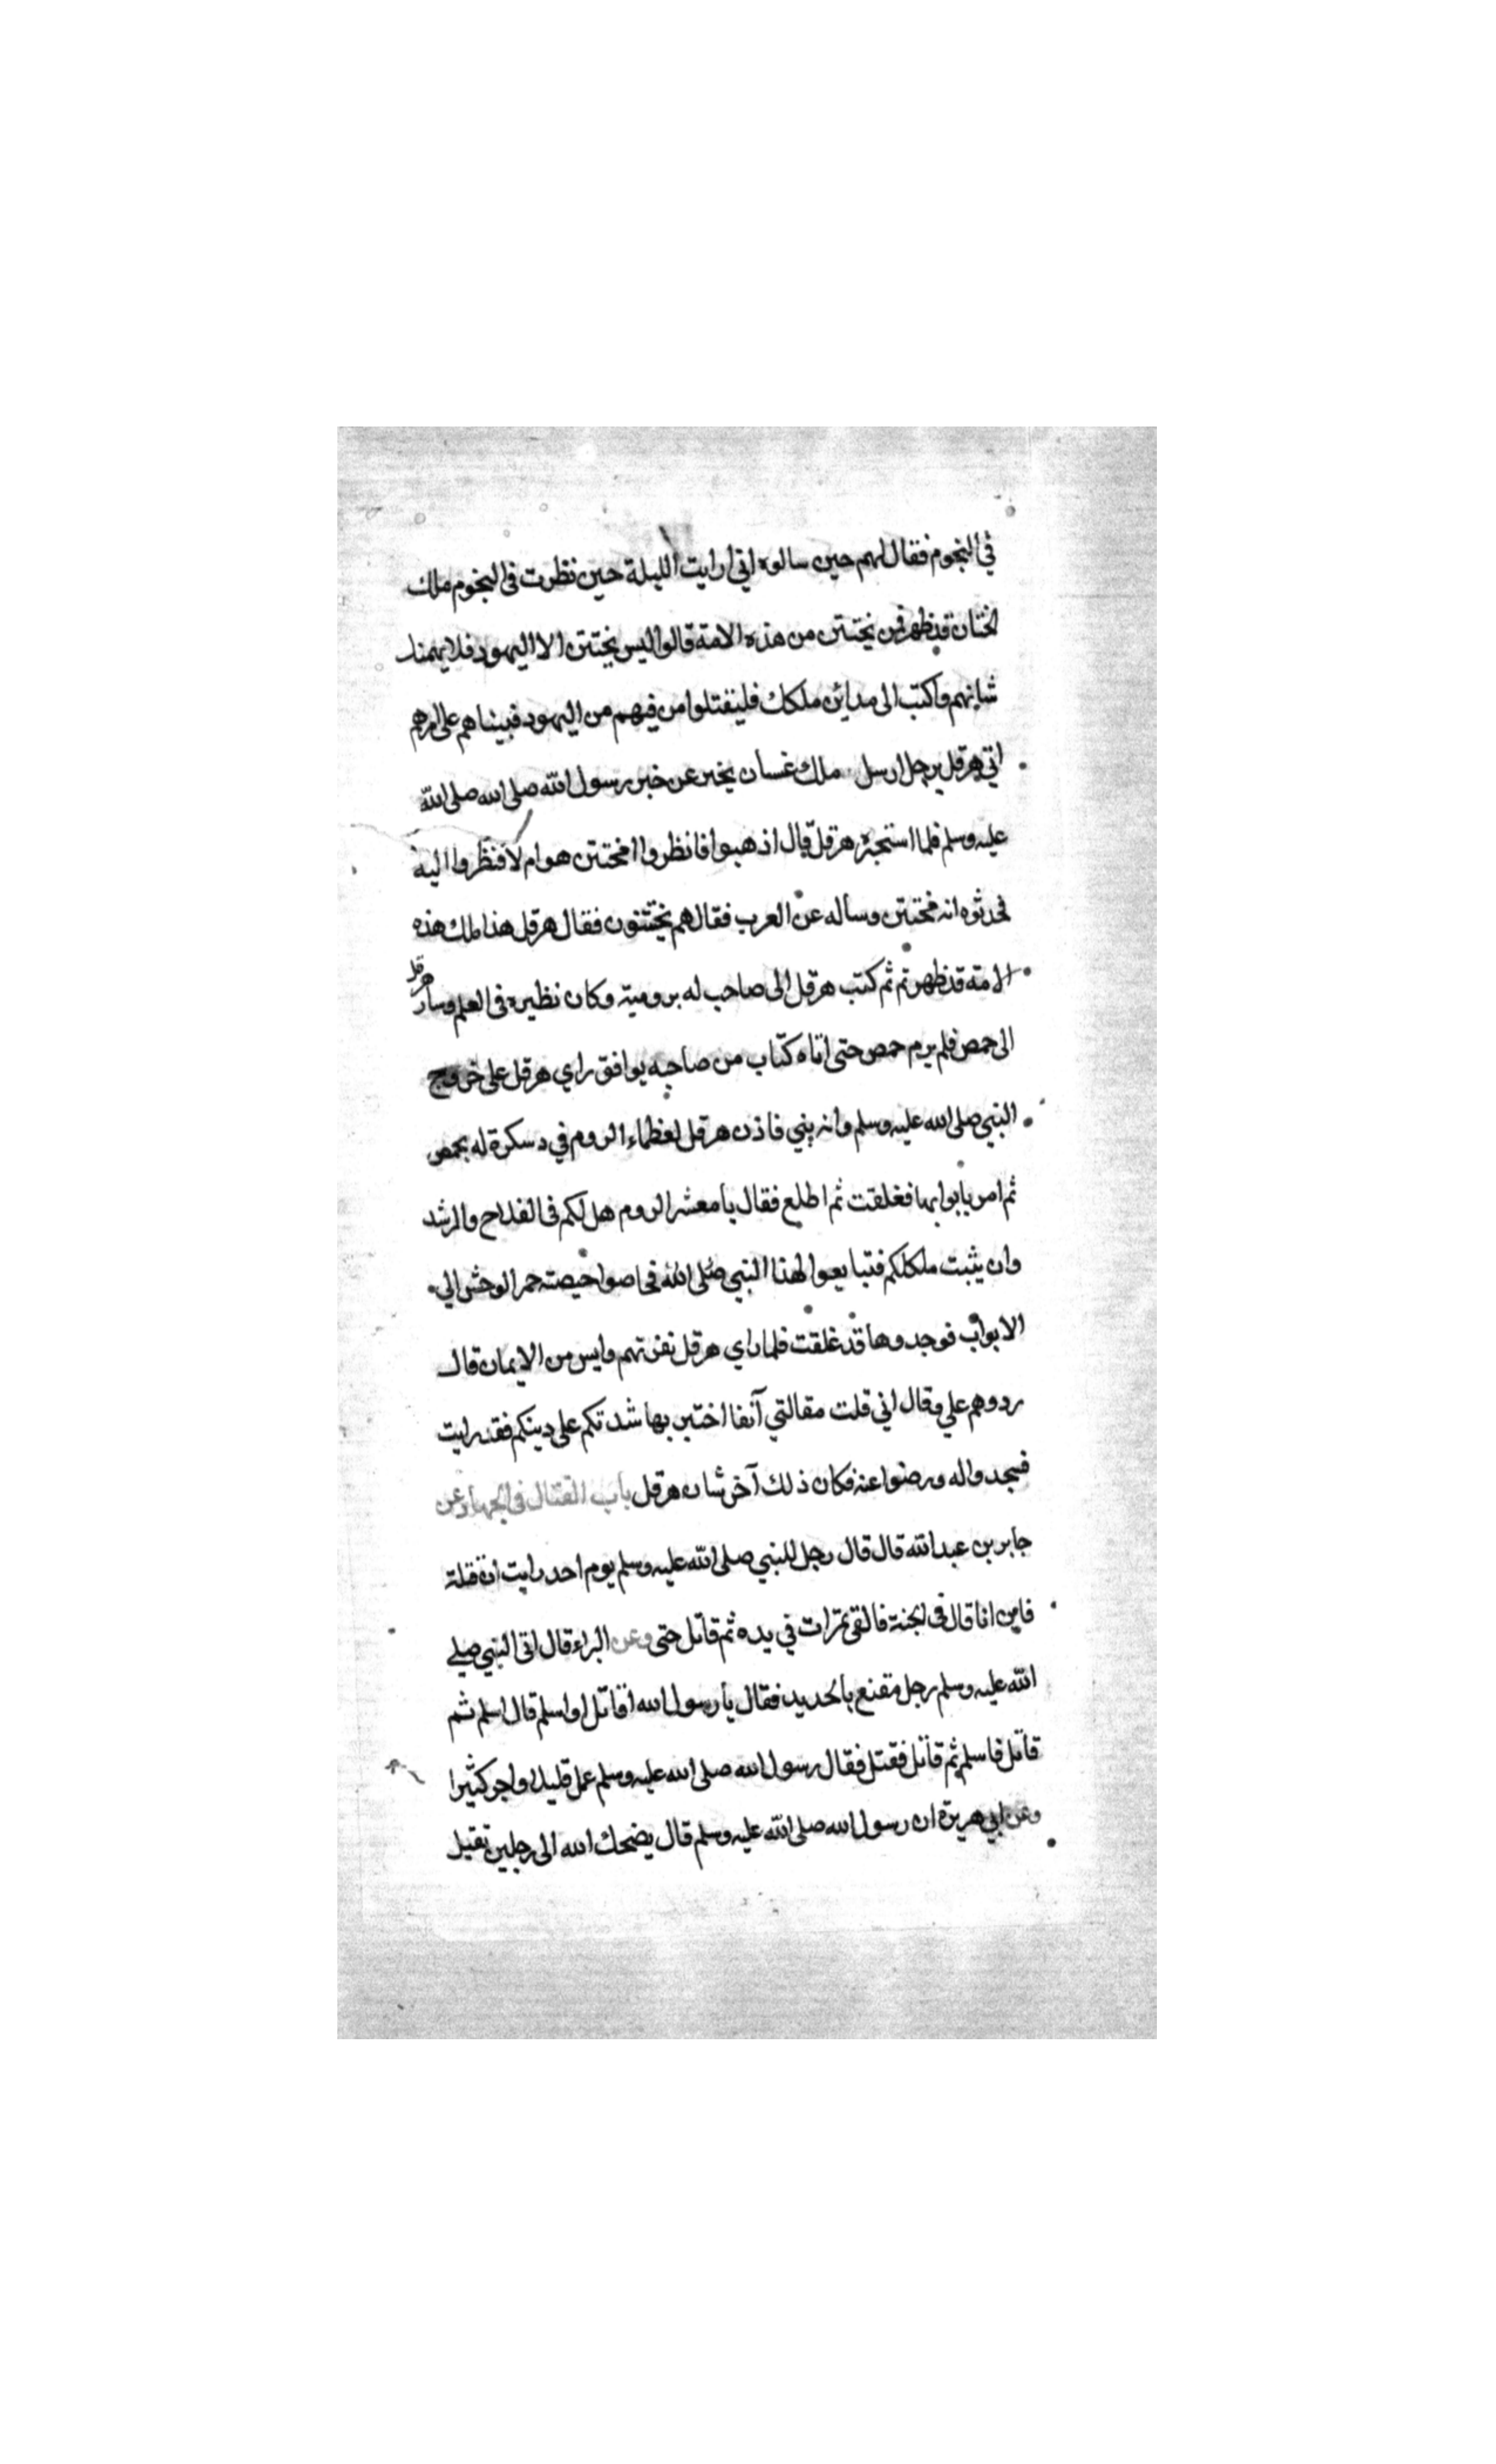 في النجوم فقال لهم حين سالوه اني ارايت الليلة حين نظرت في النجوم ملك
الختان قد ظهر فمن يختتن من هذه الامة قالوا ليس يختتن الا اليهود فلا يهمنك
شانهم واكتب الى مدائن ملكك فليقتلوا من فيهم من اليهود فبيناهم على امرهم
اتي هرقل برجل ارسل ملك غسان يخبر عن خبر رسول الله صلى الله صلى الله
عليه وسلم فلما استخبره هرقل قال اذهبوا فانظروا امختتن هو ام لا فنظروا اليه
فحدثوه انه مختتن وساله عن العرب فقال هم يختتنون فقال هرقل هذا ملك هذه
الامة قد ظهر ثم ثم كتب هرقل الى صاحب له برومية وكان نظيره في العلم وسار هرقل
الى حمص فلم يرم حمص حتى اتاه كتاب من صاحبه يوافق راي هرقل على خروج
النبي صلى الله عليه وسلم وانه بني فاذن هرقل لعظماء الروم في دسكرة له بحمص
ثم امر بابوابها فغلقت ثم اطلع فقال يا معشر الروم هل لكم في الفلاح والرشد
وان يثبت ملكلكم فتبايعوا لهذا النبي صلى الله فحاصوا حيصة حمر الوحش الي
الابواب فوجدوها قد غلقت فلما راي هرقل نفرتهم وايس من الايمان قال
ردوهم علي وقال اني قلت مقالتي آنفا اختبر بها شدتكم على دينكم فقد رايت
فسجدوا له ورضوا عنه فكان ذلك آخر شان هرقل باب القتال في الجهاد عن
جابر بن عبد الله قال قال رجل للنبي صلى الله عليه وسلم يوم احد رايت ان قتلت
فاين انا قال في الجنة فالقى تمرات في يده ثم قاتل حتى وعن البراء قال اتى النبي صلى
الله عليه وسلم رجل مقنع بالحديد فقال يا رسول الله اقاتل او اسلم قال اسلم ثم
قاتل فاسلم ثم قاتل فقتل فقال رسول الله صلى الله عليه وسلم عمل قليلا واجر كثيرا
وعن ابي هريرة ان رسول الله صلى الله عليه وسلم قال يضحك الله الى رجلين تقيل